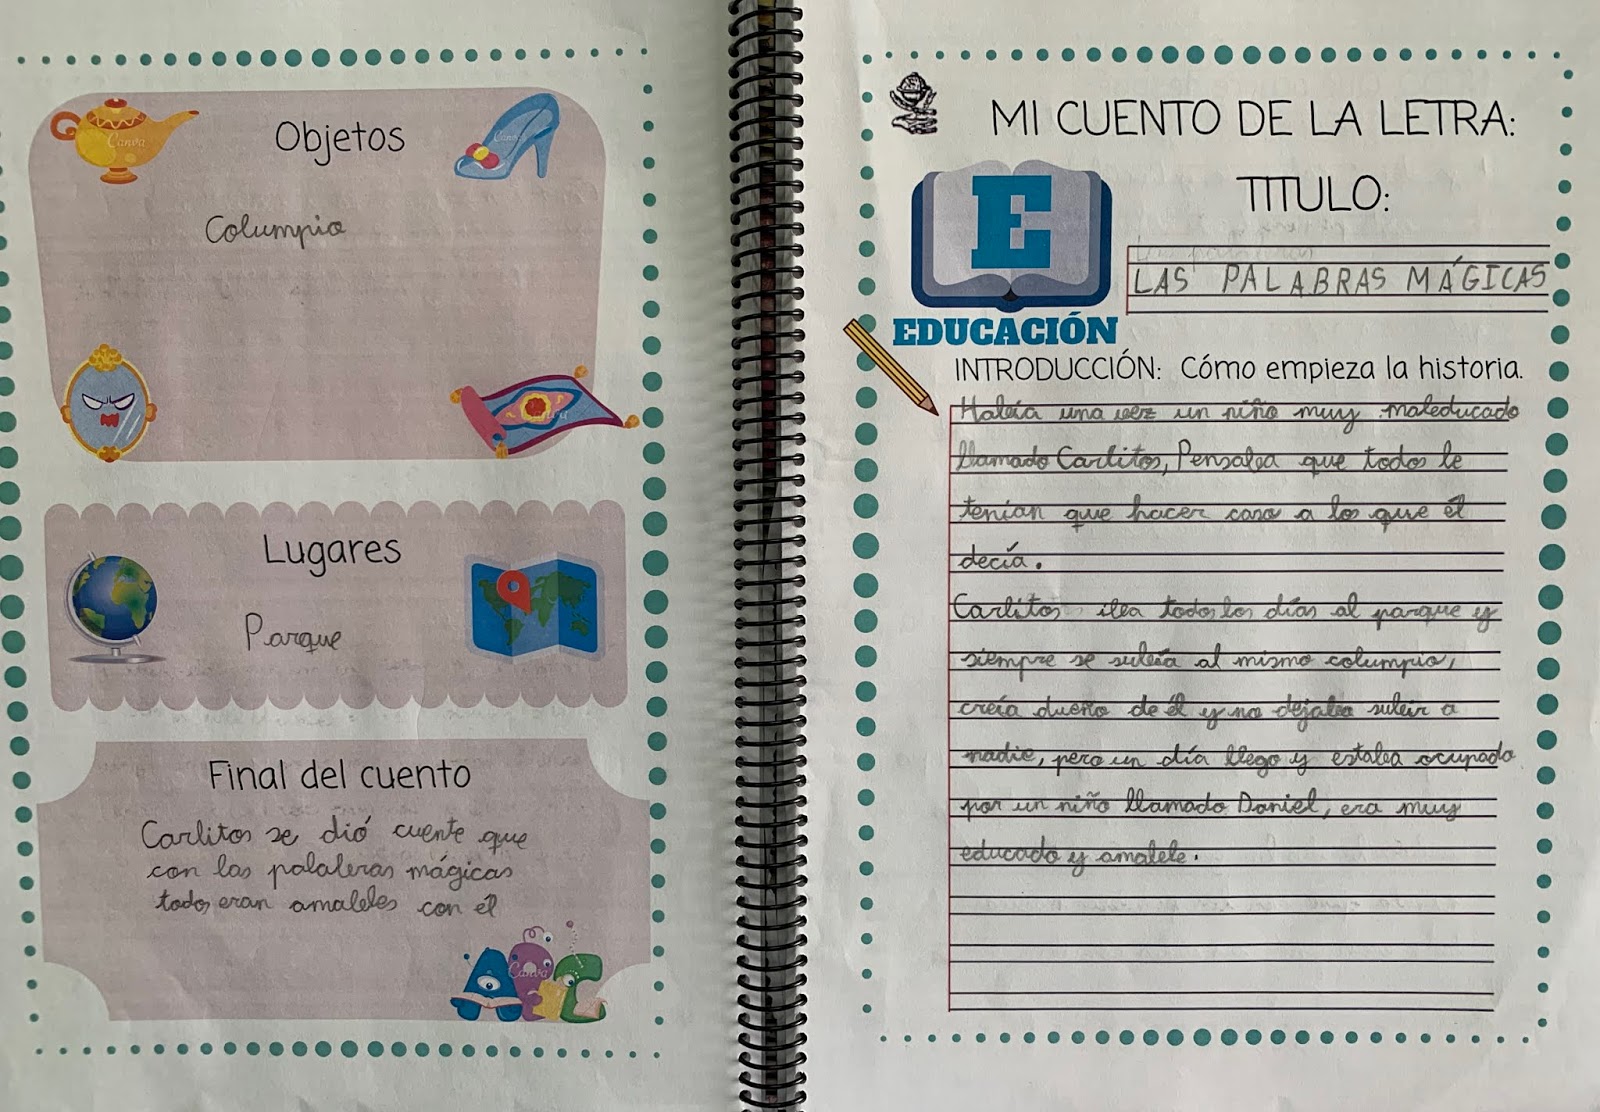 Objetos
Columpio
Lugares
Parque
Final del cuento
Carlitos se dió cuente que
con las palabras mágicas
todos eran amables con él
MI CUENTO DE LA LETRA:
E
EDUCACIÓN
TITULO:
LAS PALABRAS MÁGICAS
INTRODUCCIÓN: Cómo empieza la historia.
Había una vez un niño muy maleducado
llamado Carlitos, Pensaba que todos le
tenían que hacer caso a los que él
decía.
Carlitos iba todos los días al parque y
siempre se subía al mismo columpio,
creía dueño de él y no dejaba subir a
nadie, pero un día llego y estaba ocupado
por un niño llamado Daniel, era muy
educado y amable.